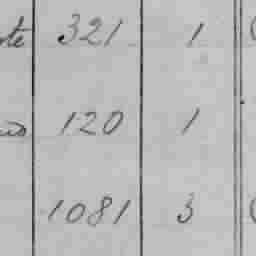 321 1
120 1
1081 3